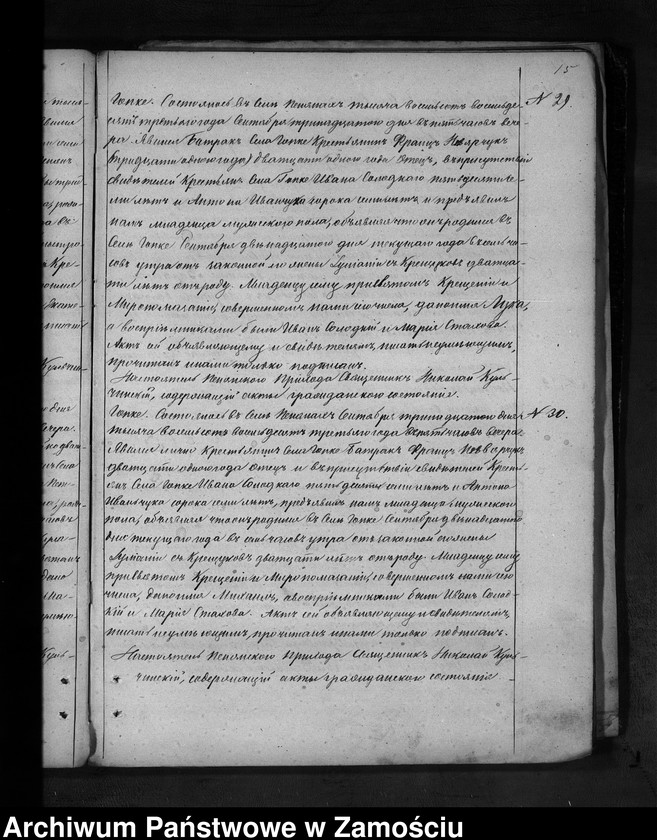 15
Гопке. Состоялось въ Селѣ Пепянахъ тысяча восемьсотъ восемьде-
сятъ третьяго года Сентября тринадцатого дня въ пять часовъ вече-
ра. Явился Батракъ Села Гопке Крестьянинъ Францъ
(тридцати одного года) двадцати одного года Отецъ, въ присутствіи
свидѣтелей Крестьянъ Села Гопке Ивана Солодкого пятьдесяти се-
ми лѣтъ и Антона Иванчука сорока семи лѣтъ и предъявилъ
намъ младенца мужеского пола, объявляя что онъ родился въ
Селѣ Гопке Сентября двѣнадцатого дня текущаго года въ семь ча-
совъ утра отъ законной его жены Луціаніи съ Крещуковъ двадца-
ти лѣтъ отъ роду. Младенцу сему при святомъ Крещеніи и
Миропомазаніи, совершенномъ нами сего числа, дано имя Лука,
а воспріемниками были Иванъ Солодкій и Марія Стахова.
Актъ сей объявляющему и свидѣтелямъ, писать неумѣющимъ,
прочитанъ и нами только подписанъ.
Настоятель Пепянского Прихода Священникъ Николай Куль-
чинскій, содержащій акты гражданского состоянія.
№ 29.
Гопке. Состоялось въ Селѣ Пепянахъ Сентября тринадцатого дня
тысяча восемьсотъ восемьдесятъ третьяго года въ пять часовъ вечера.
Явился лично Крестьянинъ Села Гопке Батракъ Францъ
двадцати одного года отецъ и въ присутствіи свидѣтелей Кресть-
янъ Села Гопке Ивана Солодкого пятьдесяти семи лѣтъ и Антона
Иванчука сорока семи лѣтъ, предъявилъ намъ младенца мужеского
пола, объявляя что онъ родился въ Селѣ Гопке Сентября двѣнадцатого
дня текущаго года въ семь часовъ утра отъ законной его жены
Луціаніи съ Крещуковъ двадцати лѣтъ отъ роду. Младенцу сему
при святомъ Крещеніи и Миропомазаніи, совершенномъ нами сего
числа, дано имя Михаилъ, а воспріемниками были Иванъ Солод-
кій и Марія Стахова. Актъ сей объявляющему и свидѣтелямъ,
писать неумѣющимъ, прочитанъ и нами только подписанъ.
Настоятель Пепянского Прихода Священникъ Николай Куль-
чинскій, содержащій акты гражданского состоянія
№ 30.
Archiwum Państwowe w Zamościu